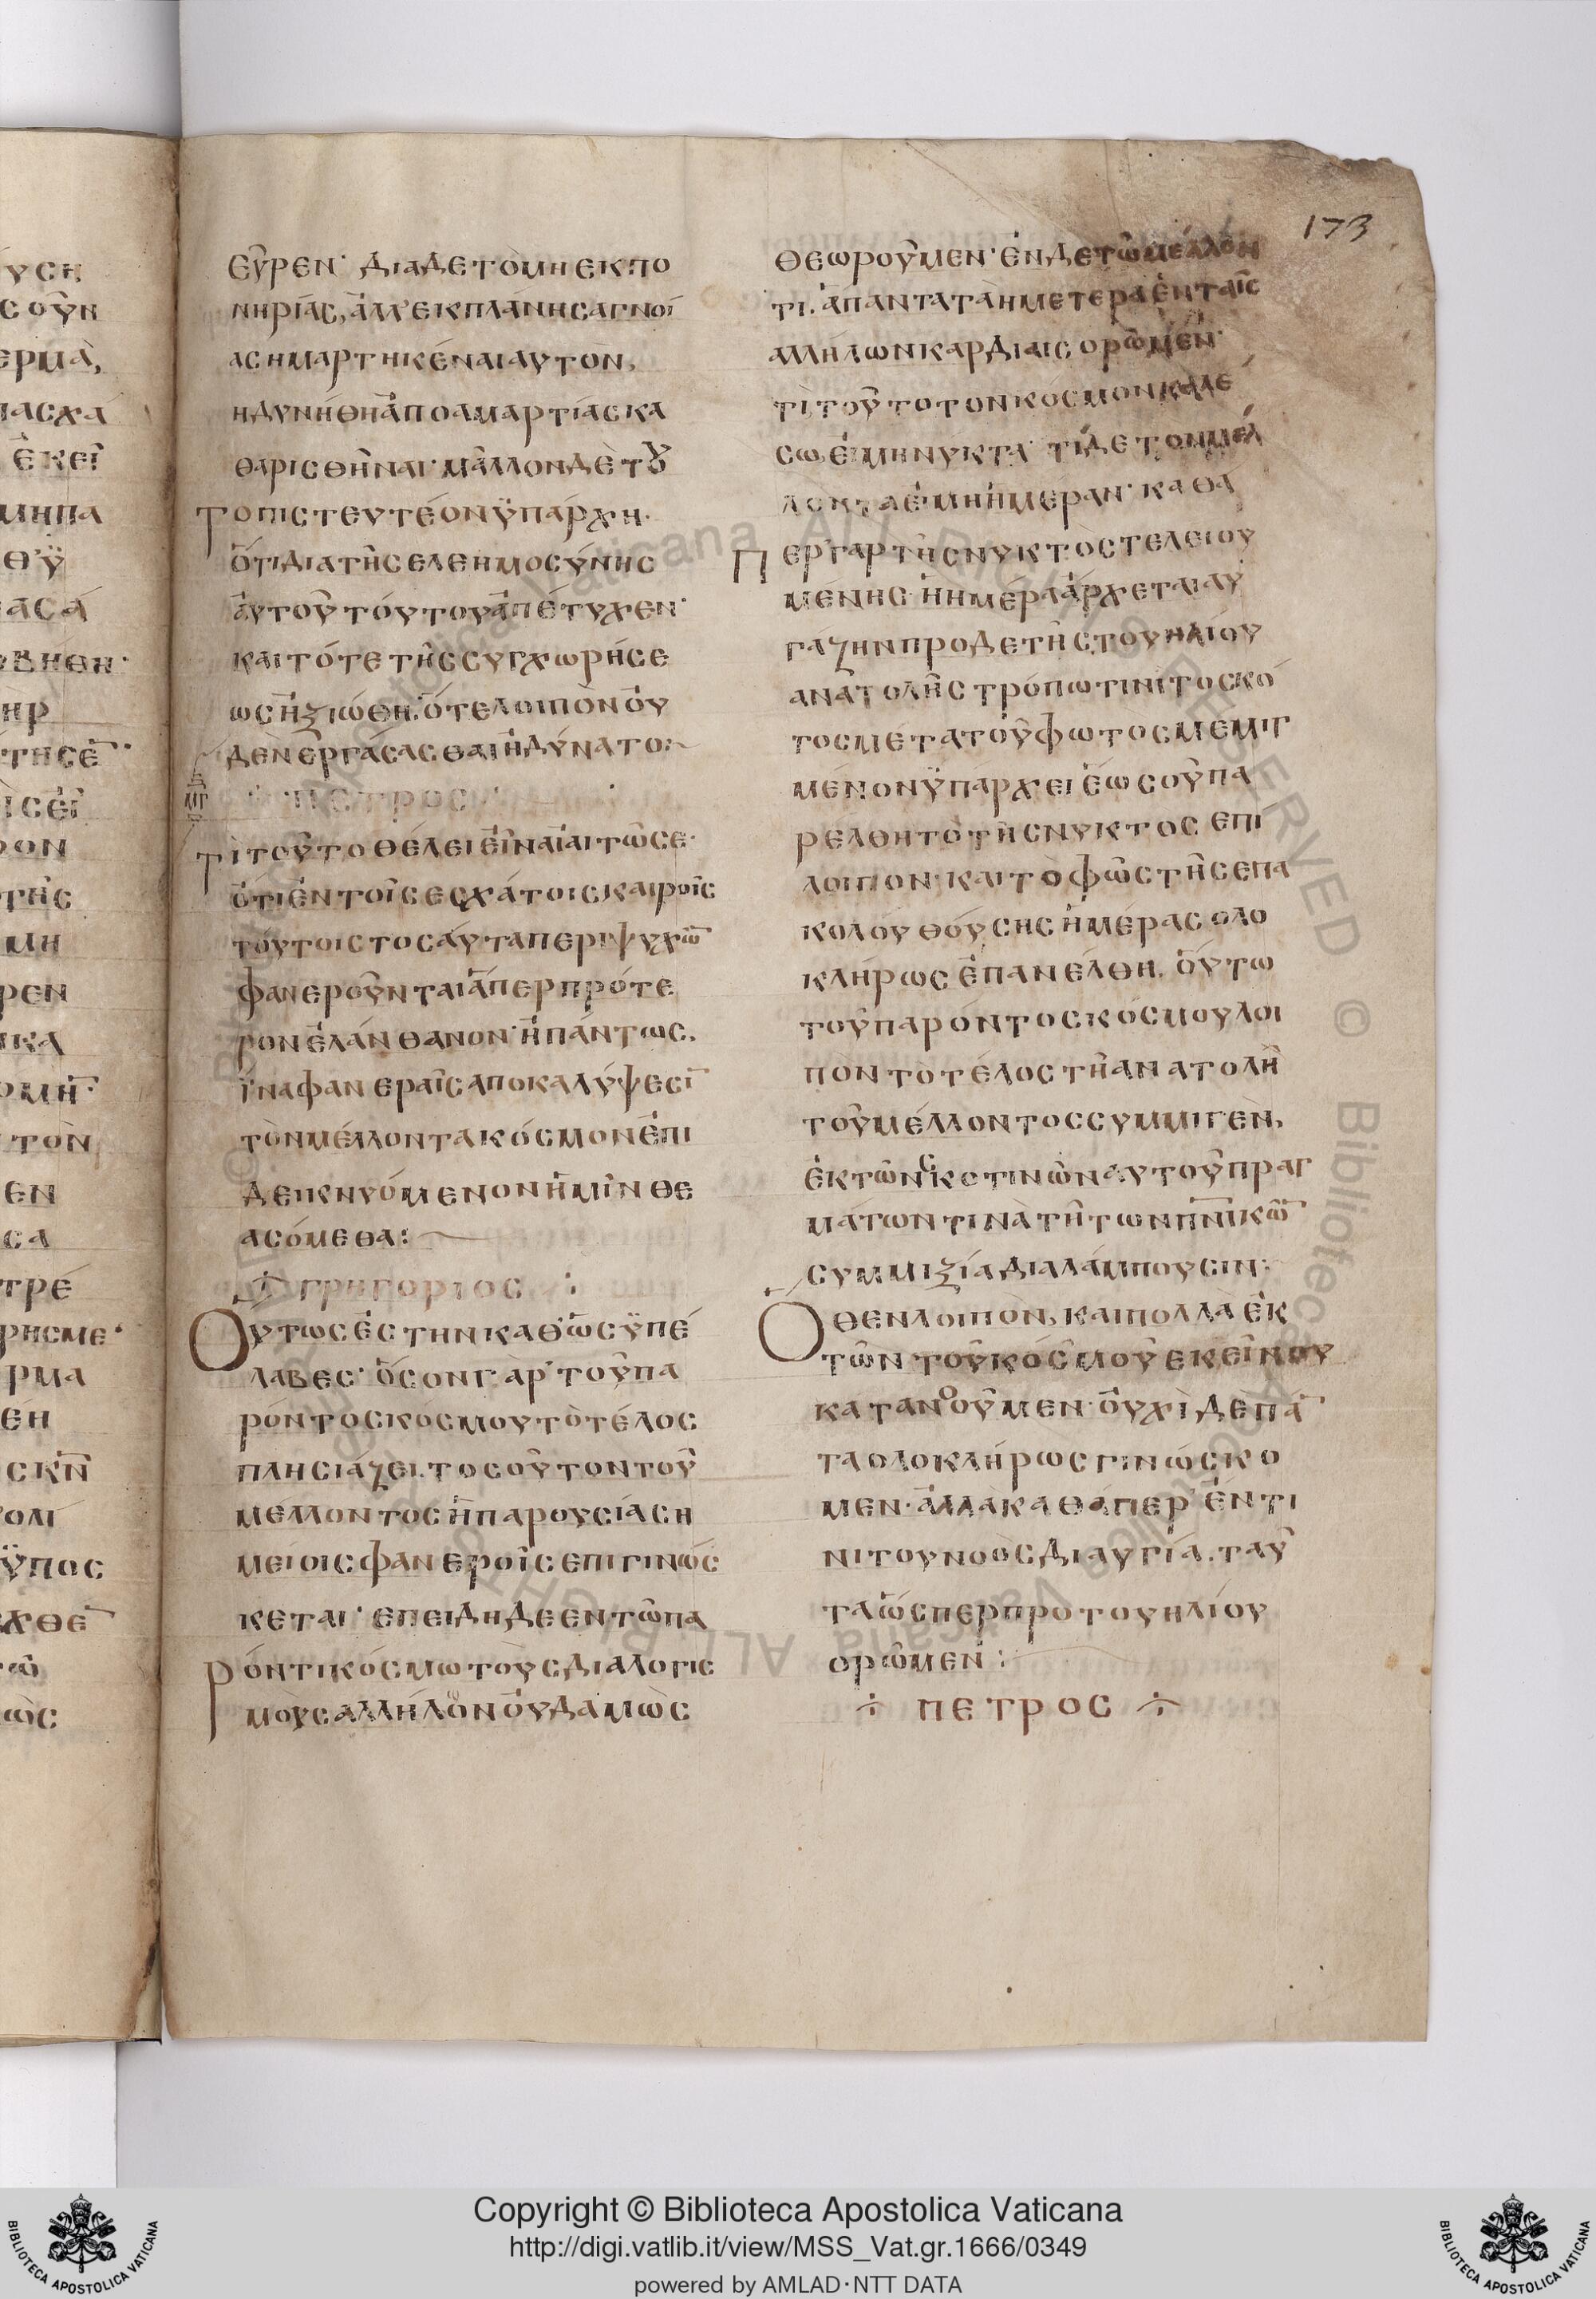 173
ευ̑ρεν· διαδετὸμηεκπο
νηρίας, ἀλλ'εκπλάνησαγνοί
ασημαρτηκέναιαυτον,
ηδυνήθηἀποαμαρτίασκα
θαρισθη̑ναι· μα̑λλονδὲτȣ
τοπιστευτέονϋπάρχη·
ὅτιδιατη̑σελεημοσύνησ
ἀυτου̑τόυτουἀπέτυχεν·
καιτότετη̑σσυγχωρήσε
ωσἠξιώθη. ὅτελοιπὸνὀυ
δὲνεργάσασθαιἠδύνατο:~
μγ
πετροσ
τίτου̑τοθέλειεἰ̑ναιαιτω̑σε·
ὅτιἐντοι̑σεσχάτοισκαιροι̑σ
τόυτοιστοσάυταπεριψυχω̑̅
φανερου̑νταιἅπερπρότε
ρονἐλάνθανον· ἠπάντωσ,
ἵναφανεραι̑σαποκαλύψεσῑ
τὸνμέλλοντακόσμονἐπι
δεικνυόμενονἡμι̑νθε
ασόμεθα:
γρηγοριοσ :
Ουτωσἐστηνκαθ'ὡσϋπέ
λαβεσ· ὅσονγὰρ'του̑πα
ρόντοσκόσμουτὸτέλοσ
πλησιάζει. τοσου̑τοντου̑
μελλοντοσἠπαρουσίαση
μείοισφανεροι̑σεπιγινώσ
κεται· επειδηδεεντω̑πα
ρόντικόσμωτὸυσδιαλογισ
μὸυσαλλήλονὀυδαμὼσ
θεωρου̑μεν· ἐνδετω̑μέλλον
τι. ἁπαντατὰημετεραἐνταῖσ
αλλήλωνκαρδίαισορω̑μεν·
τὶτου̑τοτονκόσμονκαλέ
σω, εἰμηνυκτα· τίδετονμελ
λονταεἰμηἡμέραν· καθά
περ'γὰρτη̑σνυκτὸστελειου
μένησ· ἡημέραἄρχεταιαυ
γάζηνπροδετη̑στουηλίου
ανατολη̑στρόπωτινίτοσκό
τοσμέτατου̑φωτοσμεμιγ
μένονϋπάρχειἕωσου̑πα
ρέλθητὸτη̑σνυκτοσ επι
λοιπον· καιτὸφω̑στη̑σεπα
κολουθόυσησἡμέρασολο
κλήρωσἐπανέλθη. ὅυτω
του̑παρόντοσκόσμουλοι
πὸντὸτέλοστη̑ανατολη̑
του̑μέλλοντοσσυμμιγὲν,
ἐκτω̑νσκοτινω̑ναυτου̑πραγ
μάτωντινὰτη̑τωνπ̅ν̅ικω̑̅
συμμιξίαδιαλάμπουσιν·
Οθενλοιπὸν, καιπολλὰἐκ
τω̑ντου̑κόσμουεκείνου
κατανοου̑μεν· ὀυχὶδὲπά̅
ταολοκλήρωσγινώσκο
μεν· ἀλλὰκαθάπερ'ἔντι
νιτουνοὸσδιαυγία. ταυ̑
ταὥσπερπροτουηλίου
ορω̑μεν :
÷ πετροσ ÷
Copyright © Biblioteca Apostolica Vaticana
http://digi.vatlib.it/view/MSS_Vat.gr.1666/0349
powered by AMLAD·NTT DATA